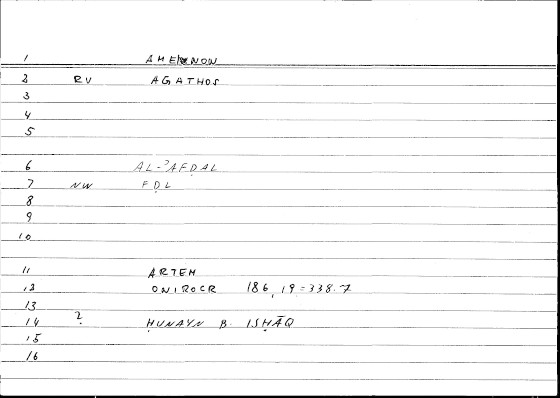 1 AMEINON
2 RV AGATHOS
3
4
5
6 AL-ʾAFḌAL
7 NW FḌL
8
9
10
11 ARTEM
12 ONIROCR 186, 19 = 338.7
13
14 ? ḤUNAYN B. ISḤĀQ
15
16